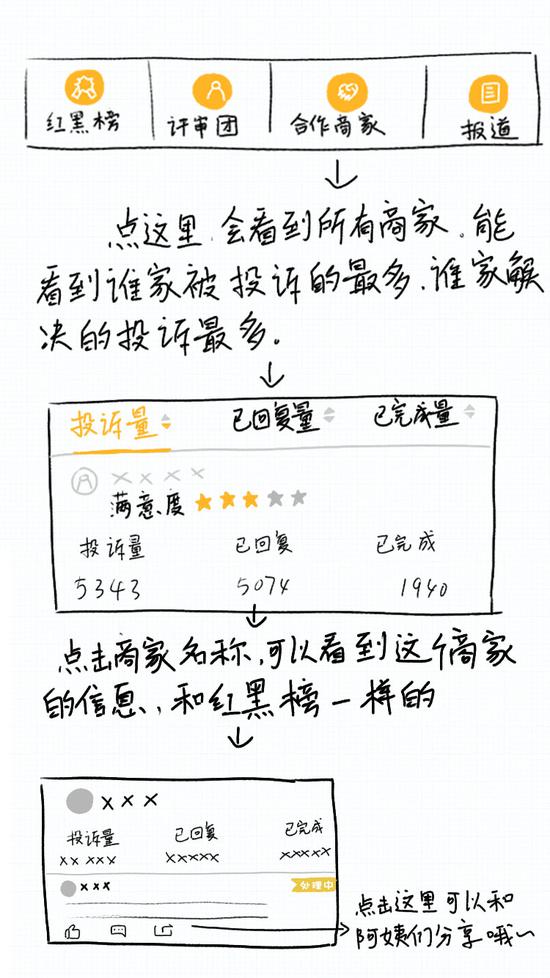 红黑榜 评审团 合作商家 报道
点这里,会看到所有商家。能
看到谁家被投诉的最多,谁家解
决的投诉最多。
投诉量 已回复量 已完成量
××××
满意度
投诉量 已回复 已完成
5343 5074 1940
点击商家名称,可以看到这个商家
的信息,和红黑榜一样的
×××
投诉量 已回复 已完成
××××× ××××× ×××××
××× 处理中
点击这里可以和
阿姨们分享哦~